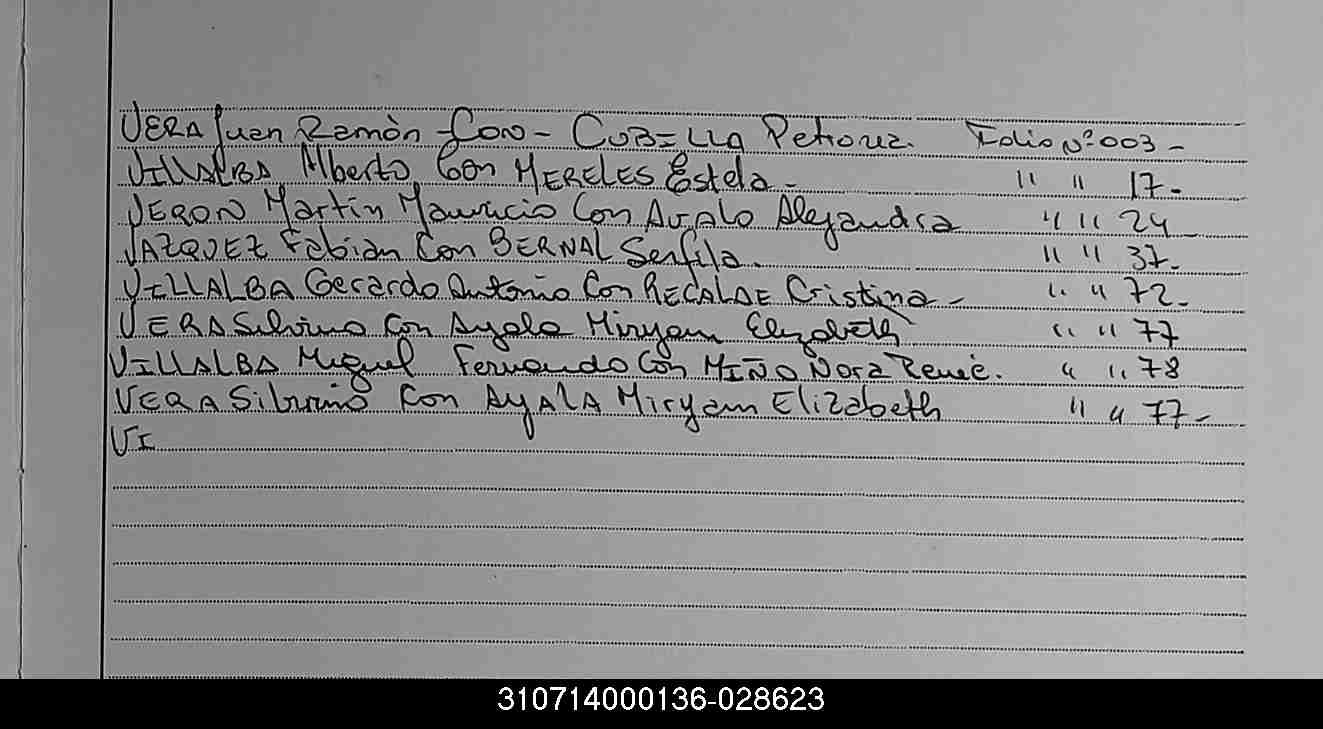 VERA Juan Ramón - Con - CUBILLA Petrona. Folio Nº 003 -
VILLALBA Alberto Con MERELES Estela - " " 17 -
VERON Martin Mauricio Con AVALO Alejandra " " 24
VAZQUEZ Fabian Con BERNAL Serfila. " " 37 -
VILLALBA Gerardo Antonio Con RECALDE Cristina - " " 72 -
VERA Silvino Con Ayala Miryam Elizabeth " " 77
VILLALBA Miguel Fernando Con MIÑO Nora Reneé. " " 78
VERA Silvino Con AYALA Miryam Elizabeth " " 77 -
VI
310714000136-028623